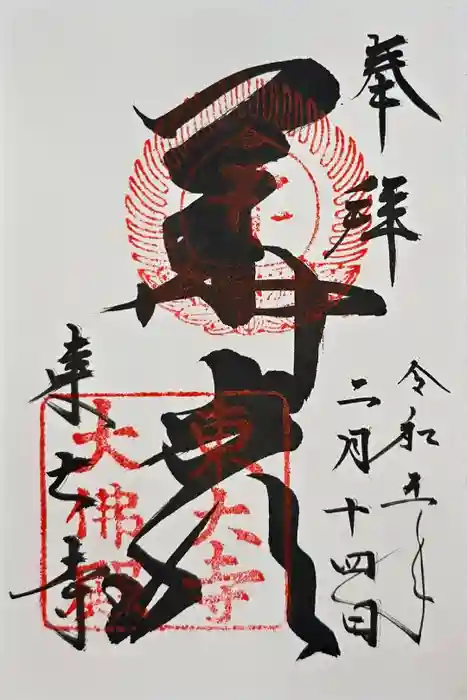 奉拝
令和五年
二月十四日
華厳
東大寺
東大寺
大佛殿